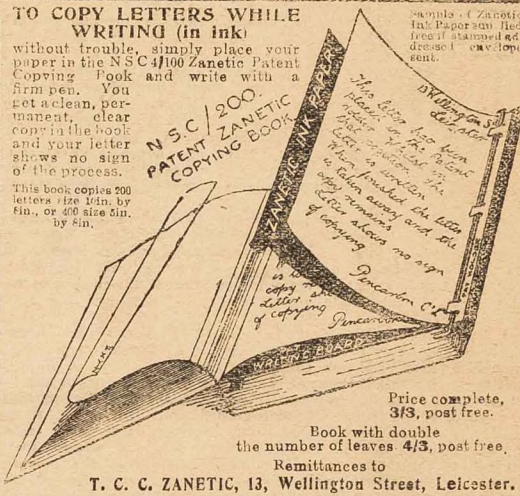 TO COPY LETTERS WHILE
WRITING (in ink)
without trouble, simply place your
paper in the N S C 4/100 Zanetic Patent
Copying Book and write with a
firm pen. You
get a clean, per-
manent, clear
copy in the book
and your letter
shows no sign
of the process.
This book copies 200
letters size 10in. by
8in., or 400 size 5in.
by 8in.
Sample of Zanetic
Ink Paper sent
free if stamped ad-
dressed envelope
sent.
N.S.C/200.
PATENT ZANETIC
COPYING BOOK
ZANETIC INK PAPER
13 Wellington St
Leicester
This letter has been
placed in the Patent
holder & whilst in
that position the
letter is written
When finished the letter
is taken away and the
copy remains. The
Letter shows no sign
of copying
Pencarbon Co Ld
is
copy
Letter
of copying
Pencarbon
WRITING BOARD
Price complete,
3/3, post free.
Book with double
the number of leaves 4/3, post free.
Remittances to
T. C. C. ZANETIC, 13, Wellington Street, Leicester.